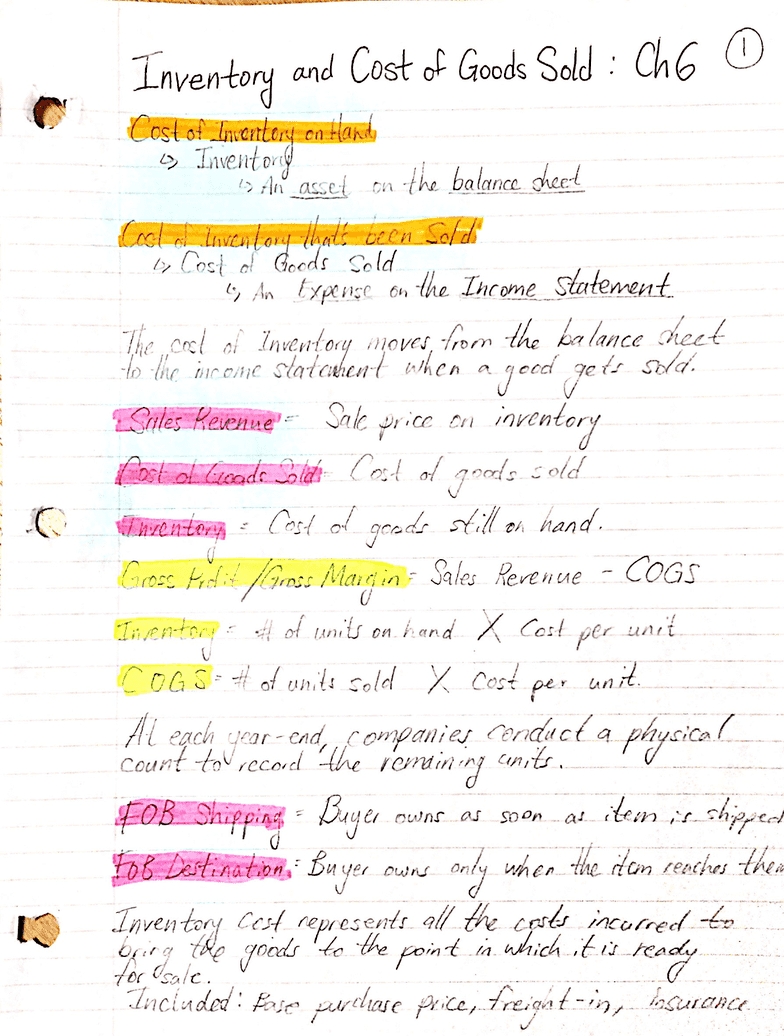 Inventory and Cost of Goods Sold : Ch 6 1
Cost of Inventory on Hand
↳ Inventory
↳ An asset on the balance sheet
Cost of Inventory that's been Sold
↳ Cost of Goods Sold
↳ An Expense on the Income Statement
The cost of Inventory moves from the balance sheet
to the income statement when a good gets sold.
Sales Revenue = Sale price on inventory
Cost of Goods Sold = Cost of goods sold
Inventory = Cost of goods still on hand.
Gross Profit / Gross Margin = Sales Revenue - COGS
Inventory = # of units on hand X Cost per unit
COGS = # of units sold X Cost per unit.
At each year-end, companies conduct a physical
count to record the remaining units.
FOB Shipping = Buyer owns as soon as item is shipped
FOB Destination = Buyer owns only when the item reaches them
Inventory cost represents all the costs incurred to
bring the goods to the point in which it is ready
for sale.
Included: Base purchase price, freight-in, insurance